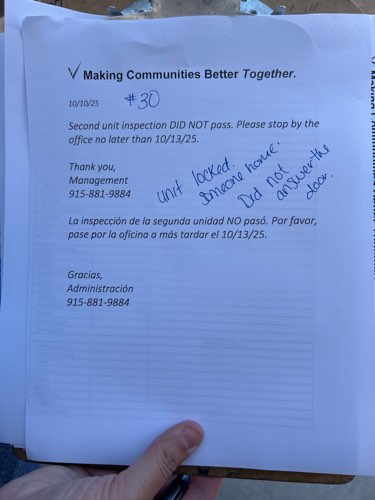 ✓ Making Communities Better Together.
10/10/25 #30
Second unit inspection DID NOT pass. Please stop by the
office no later than 10/13/25.
Thank you,
Management
915-881-9884
unit locked.
Someone home.
Did not
answer the
door.
La inspección de la segunda unidad NO pasó. Por favor,
pase por la oficina a más tardar el 10/13/25.
Gracias,
Administración
915-881-9884